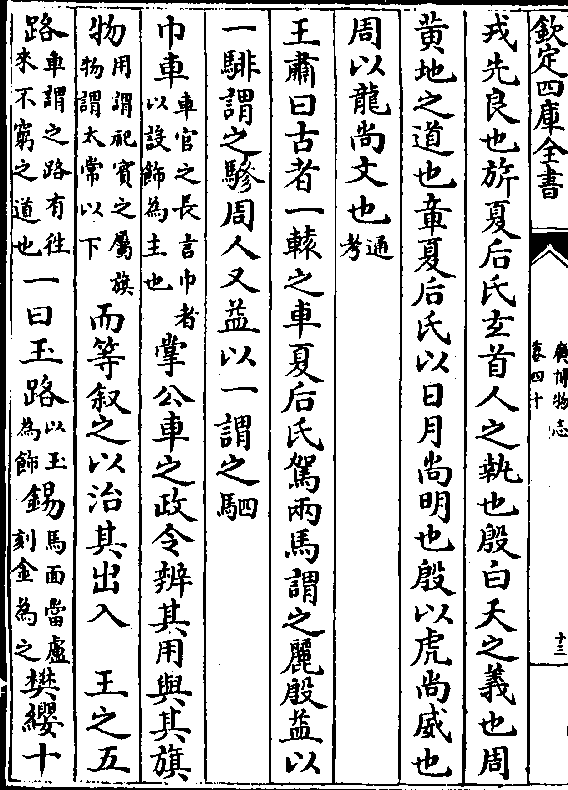 欽定四庫全書
廣博物志
卷四十
十三
戎先良也旂夏后氏玄首人之執也殷白天之義也周
黄地之道也章夏后氏以日月尚明也殷以虎尚威也
周以龍尚文也通考
王肅曰古者一轅之車夏后氏駕兩馬謂之麗殷益以
一騑謂之驂周人又益以一謂之駟
巾車車官之長言巾者以設飾為主也掌公車之政令辨其用與其旗
物用謂祀賓之屬旗物謂太常以下而等叙之以治其出入 王之五
路車謂之路有往來不窮之道也一曰玉路以玉為飾錫馬面當盧刻金為之樊纓十